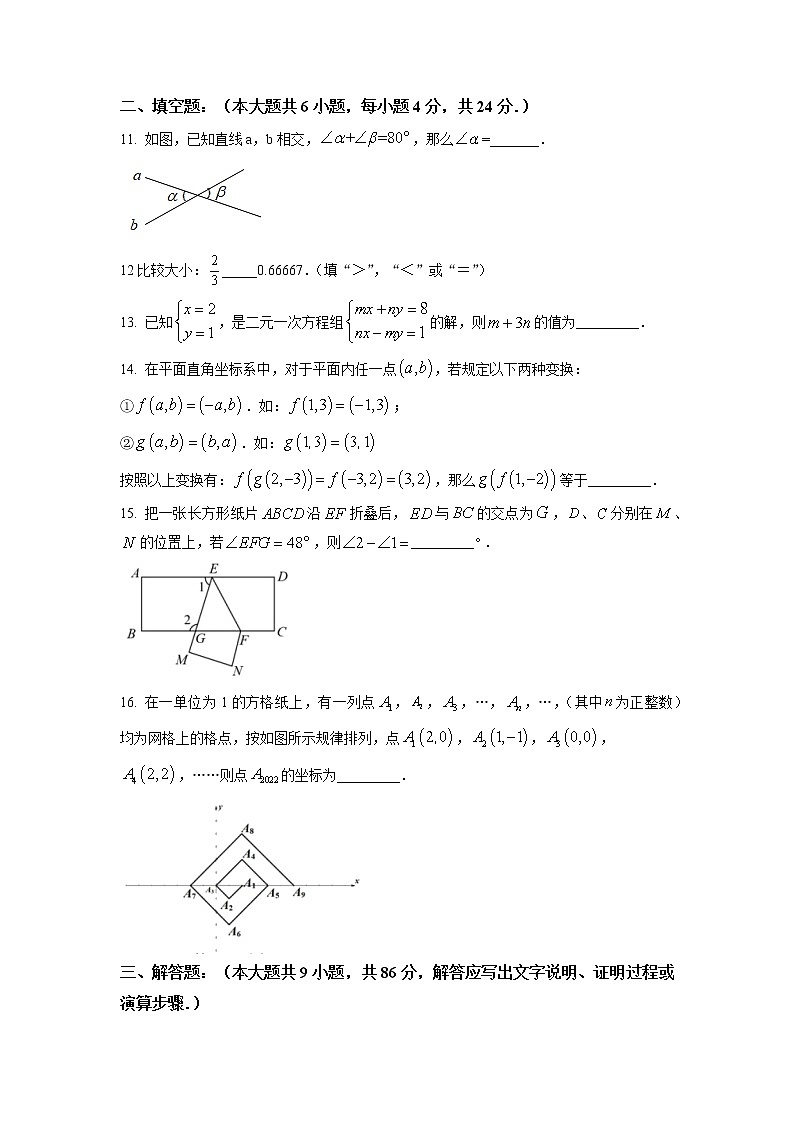 二、填空题：（本大题共6小题，每小题4分，共24分.）
11. 如图，已知直线a，b相交，∠α+∠β=80°，那么∠α=_______.
a
α
β
b
12比较大小：2/3_____0.66667.（填“＞”，“＜”或“＝”）
13. 已知{x=2, y=1，是二元一次方程组{mx+ny=8, nx−my=1的解，则m+3n的值为_________.
14. 在平面直角坐标系中，对于平面内任一点(a,b)，若规定以下两种变换：
①f(a,b)=(−a,b)．如：f(1,3)=(−1,3)；
②g(a,b)=(b,a)．如：g(1,3)=(3,1)
按照以上变换有：f(g(2,−3))=f(−3,2)=(3,2)，那么g(f(1,−2))等于_________.
15. 把一张长方形纸片ABCD沿EF折叠后，ED与BC的交点为G，D、C分别在M、
N的位置上，若∠EFG=48°，则∠2−∠1=_________°.
A
E
D
1
2
B
G
F
C
M
N
16. 在一单位为1的方格纸上，有一列点A₁，A₂，A₃，…，Aₙ，…，（其中n为正整数）
均为网格上的格点，按如图所示规律排列，点A₁(2,0)，A₂(1,−1)，A₃(0,0)，
A₄(2,2)，……则点A₂₀₂₂的坐标为_________.
y
A₈
A₄
A₇
A₃
A₁
A₅
A₉
x
A₂
A₆
三、解答题：（本大题共9小题，共86分，解答应写出文字说明、证明过程或
演算步骤.）